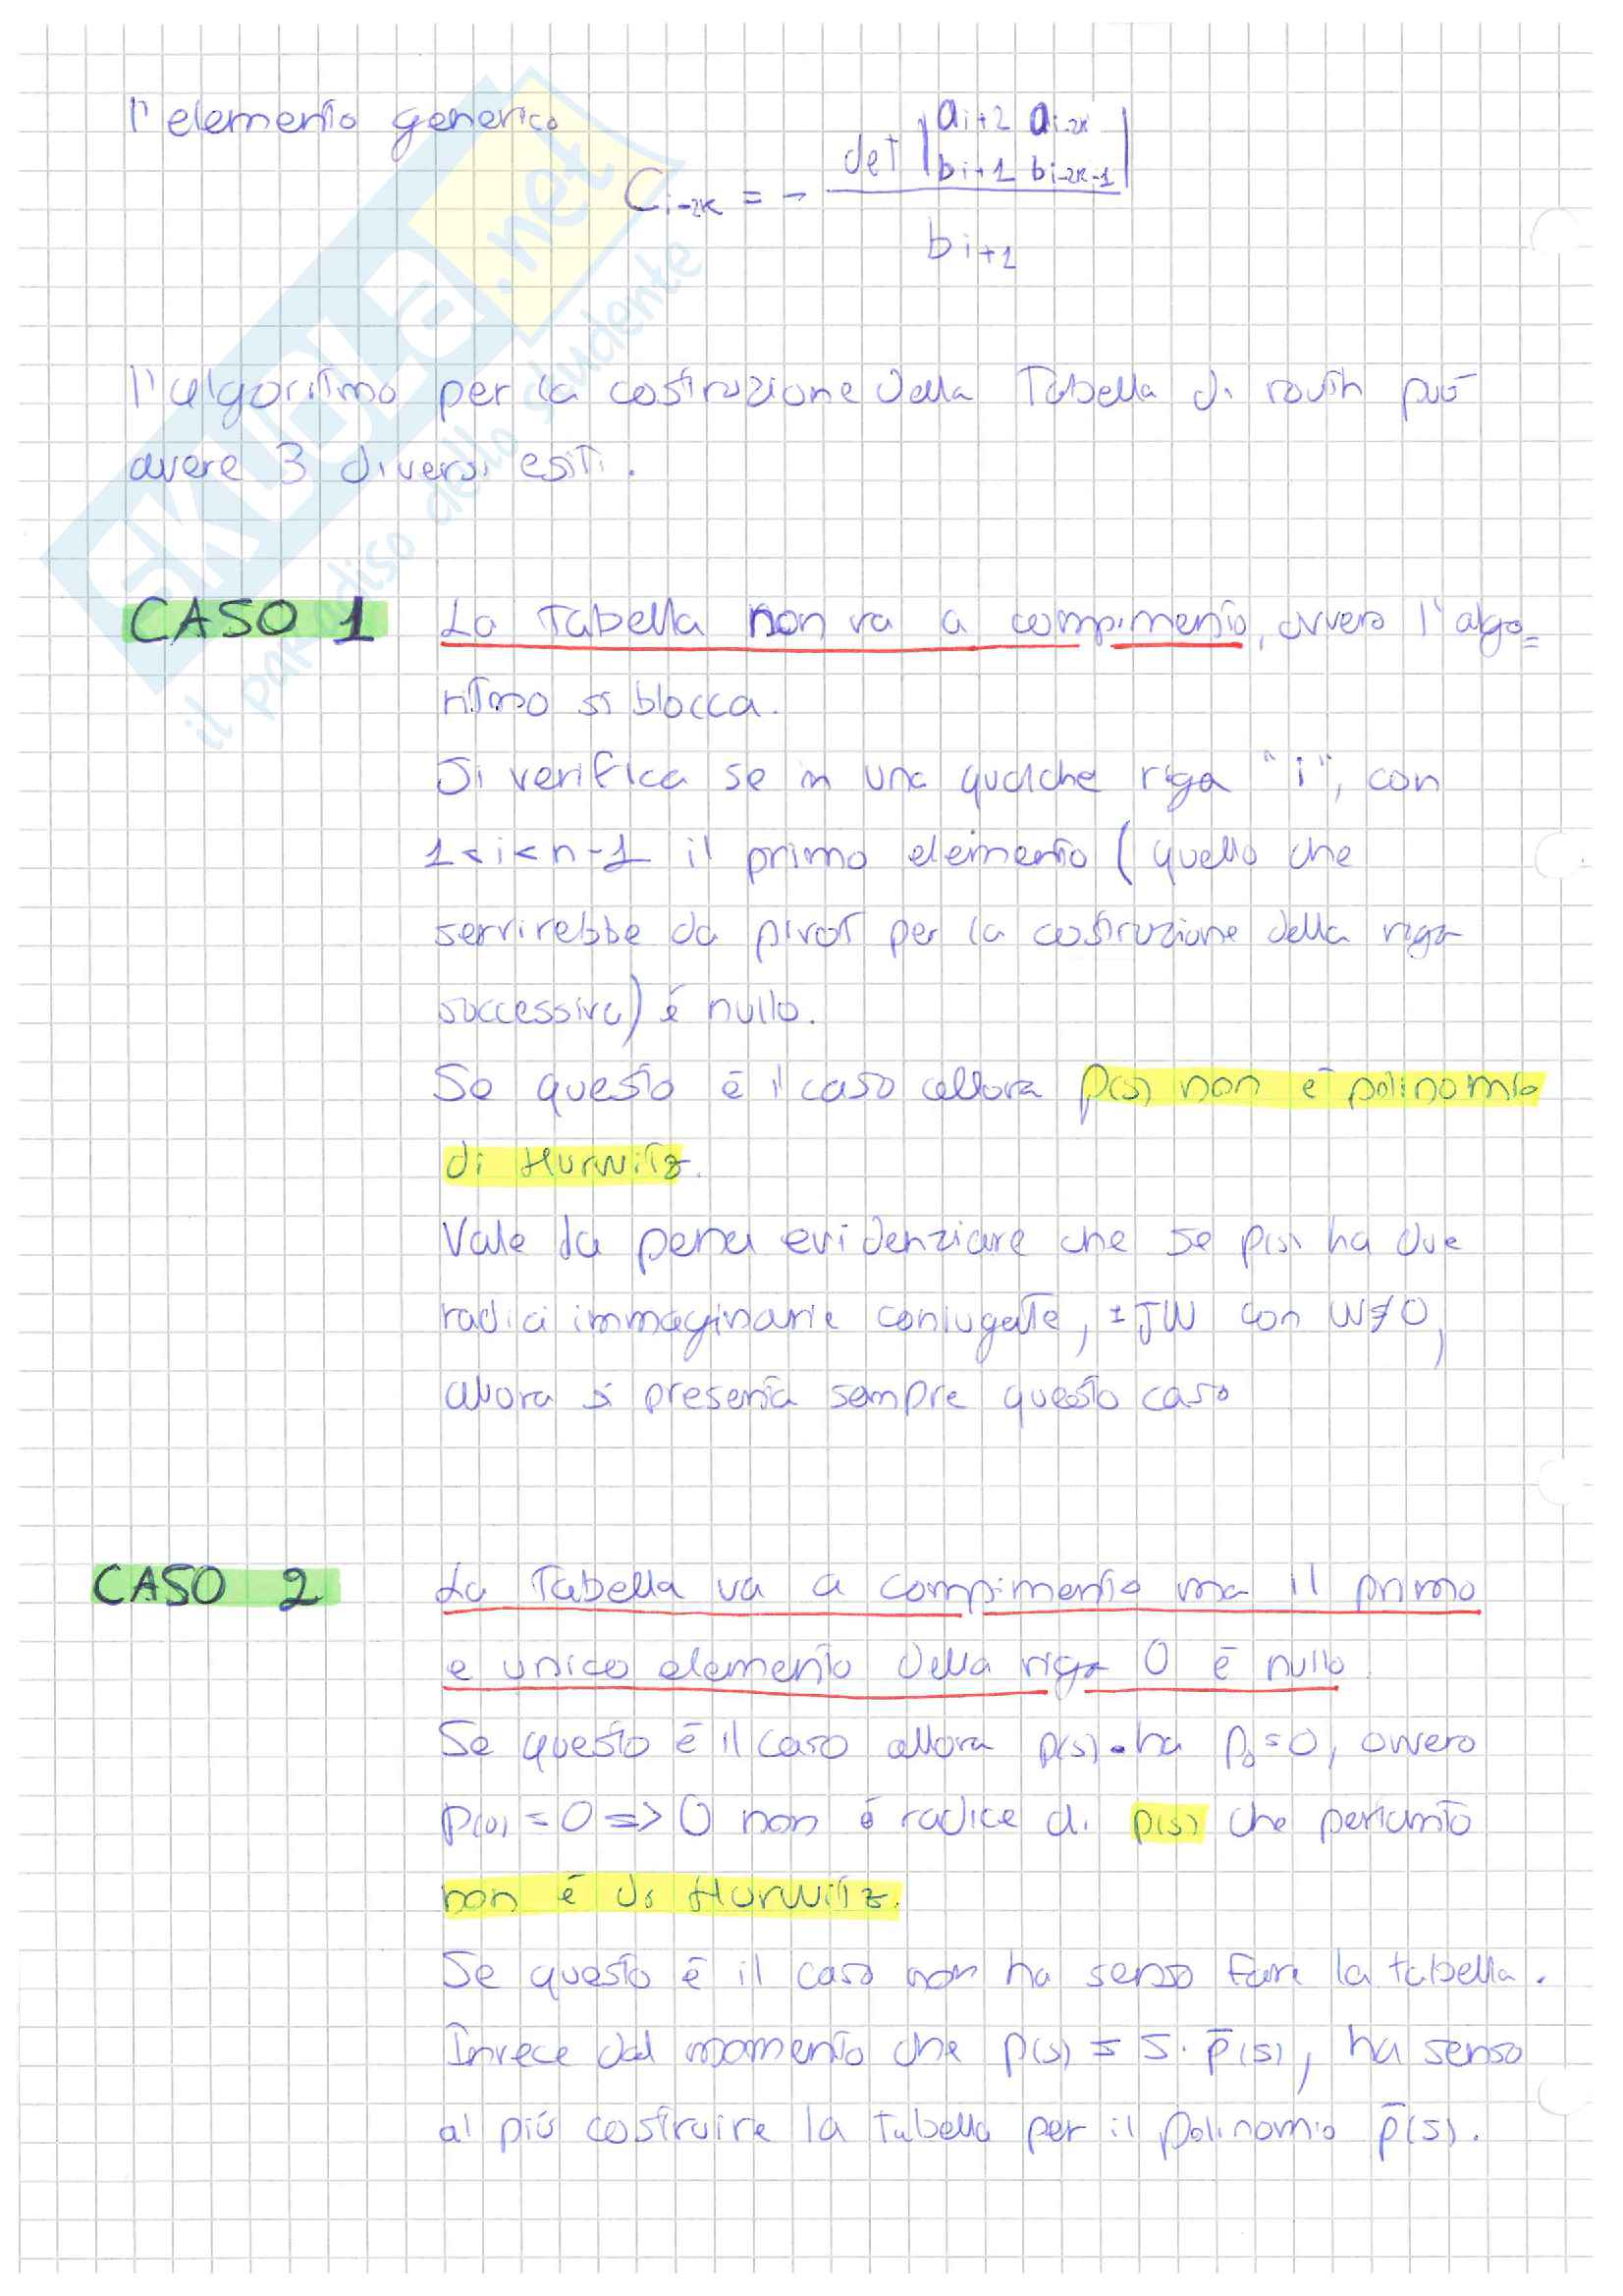 l'elemento generico
C i-2k = - det | a i+2 a i-2k |
| b i+1 b i-2k-1 |
b i+1
l'algoritmo per la costruzione della Tabella di routh può
avere 3 diversi esiti.
CASO 1 La Tabella non va a compimento, ovvero l'algo=
ritmo si blocca.
Si verifica se in una qualche riga "i", con
1<i<n-1 il primo elemento (quello che
servirebbe da pivot per la costruzione della riga
successiva) è nullo.
Se questo è il caso allora p(s) non è polinomio
di Hurwitz.
Vale la pena evidenziare che se p(s) ha due
radici immaginarie coniugate, ±JW con W≠0,
allora si presenta sempre questo caso
CASO 2 La Tabella va a compimento ma il primo
e unico elemento della riga 0 è nullo.
Se questo è il caso allora p(s) ha p₀=0, ovvero
p(0)=0 => 0 non è radice di p(s) che pertanto
non è di Hurwitz.
Se questo è il caso non ha senso fare la tabella.
Invece dal momento che p(s) = s·p̄(s), ha senso
al più costruire la tabella per il polinomio p̄(s).
SKUOLA.net
il paradiso dello studente